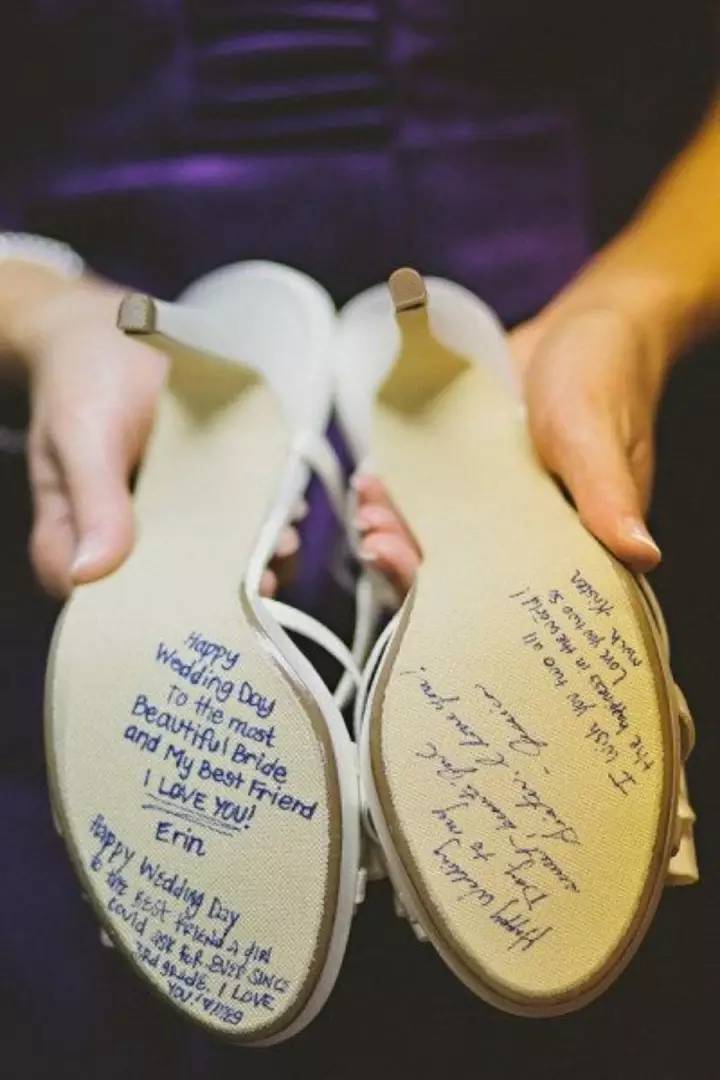 Happy
Wedding Day
To the most
Beautiful Bride
and My Best Friend
I LOVE YOU!
Erin
Happy Wedding Day
to the BEST FRIEND A girl
could ask for. EVER SINCE
3rd grade. I LOVE
YOU!
I wish you two all
the happiness in the world!
Love you two so
much Kristen
Happy Wedding
Day to my
Sister. I love you!